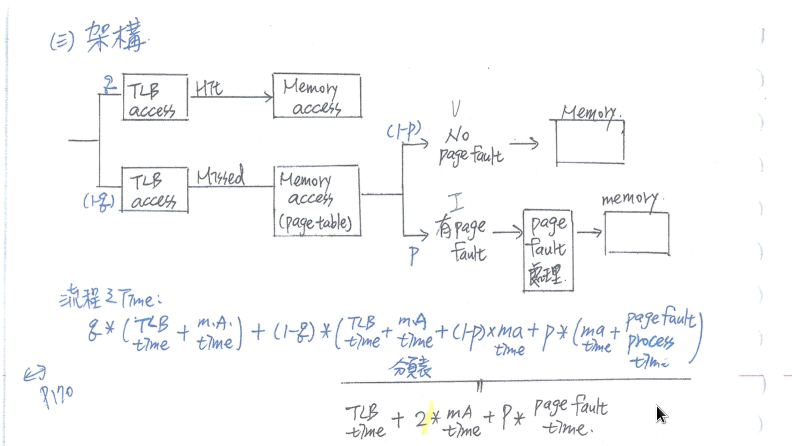 (三) 架構
q TLB access Hit Memory access
(1-q) TLB access Missed Memory access (page table)
(1-p) V No page fault Memory.
p I 有page fault page fault 處理. memory.
流程之Time:
q * (TLB time + m.A. time) + (1-q) * (TLB time + m.A time + (1-p) × ma time + p * (ma time + page fault process time))
分頁表
P170
=
TLB time + 2 * mA time + p * page fault time.